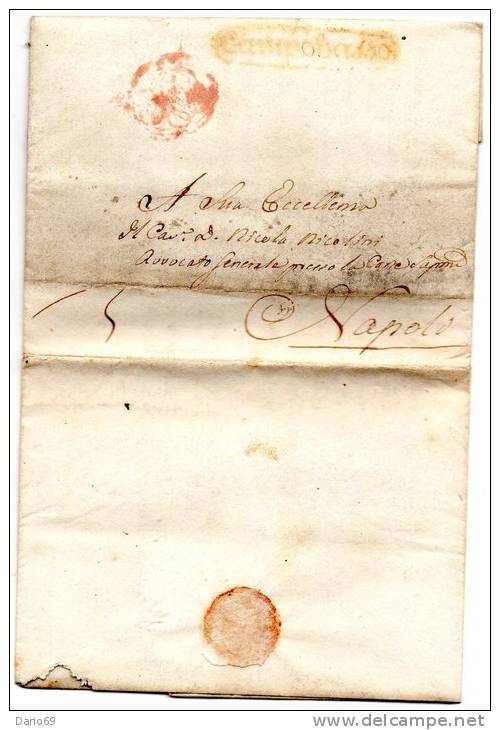 Campobasso
A Sua Eccellenza
Il Cav.r D. Nicola Nicolini
Avvocato Generale presso la Corte Suprem
Napoli
Dario69
www.delcampe.net